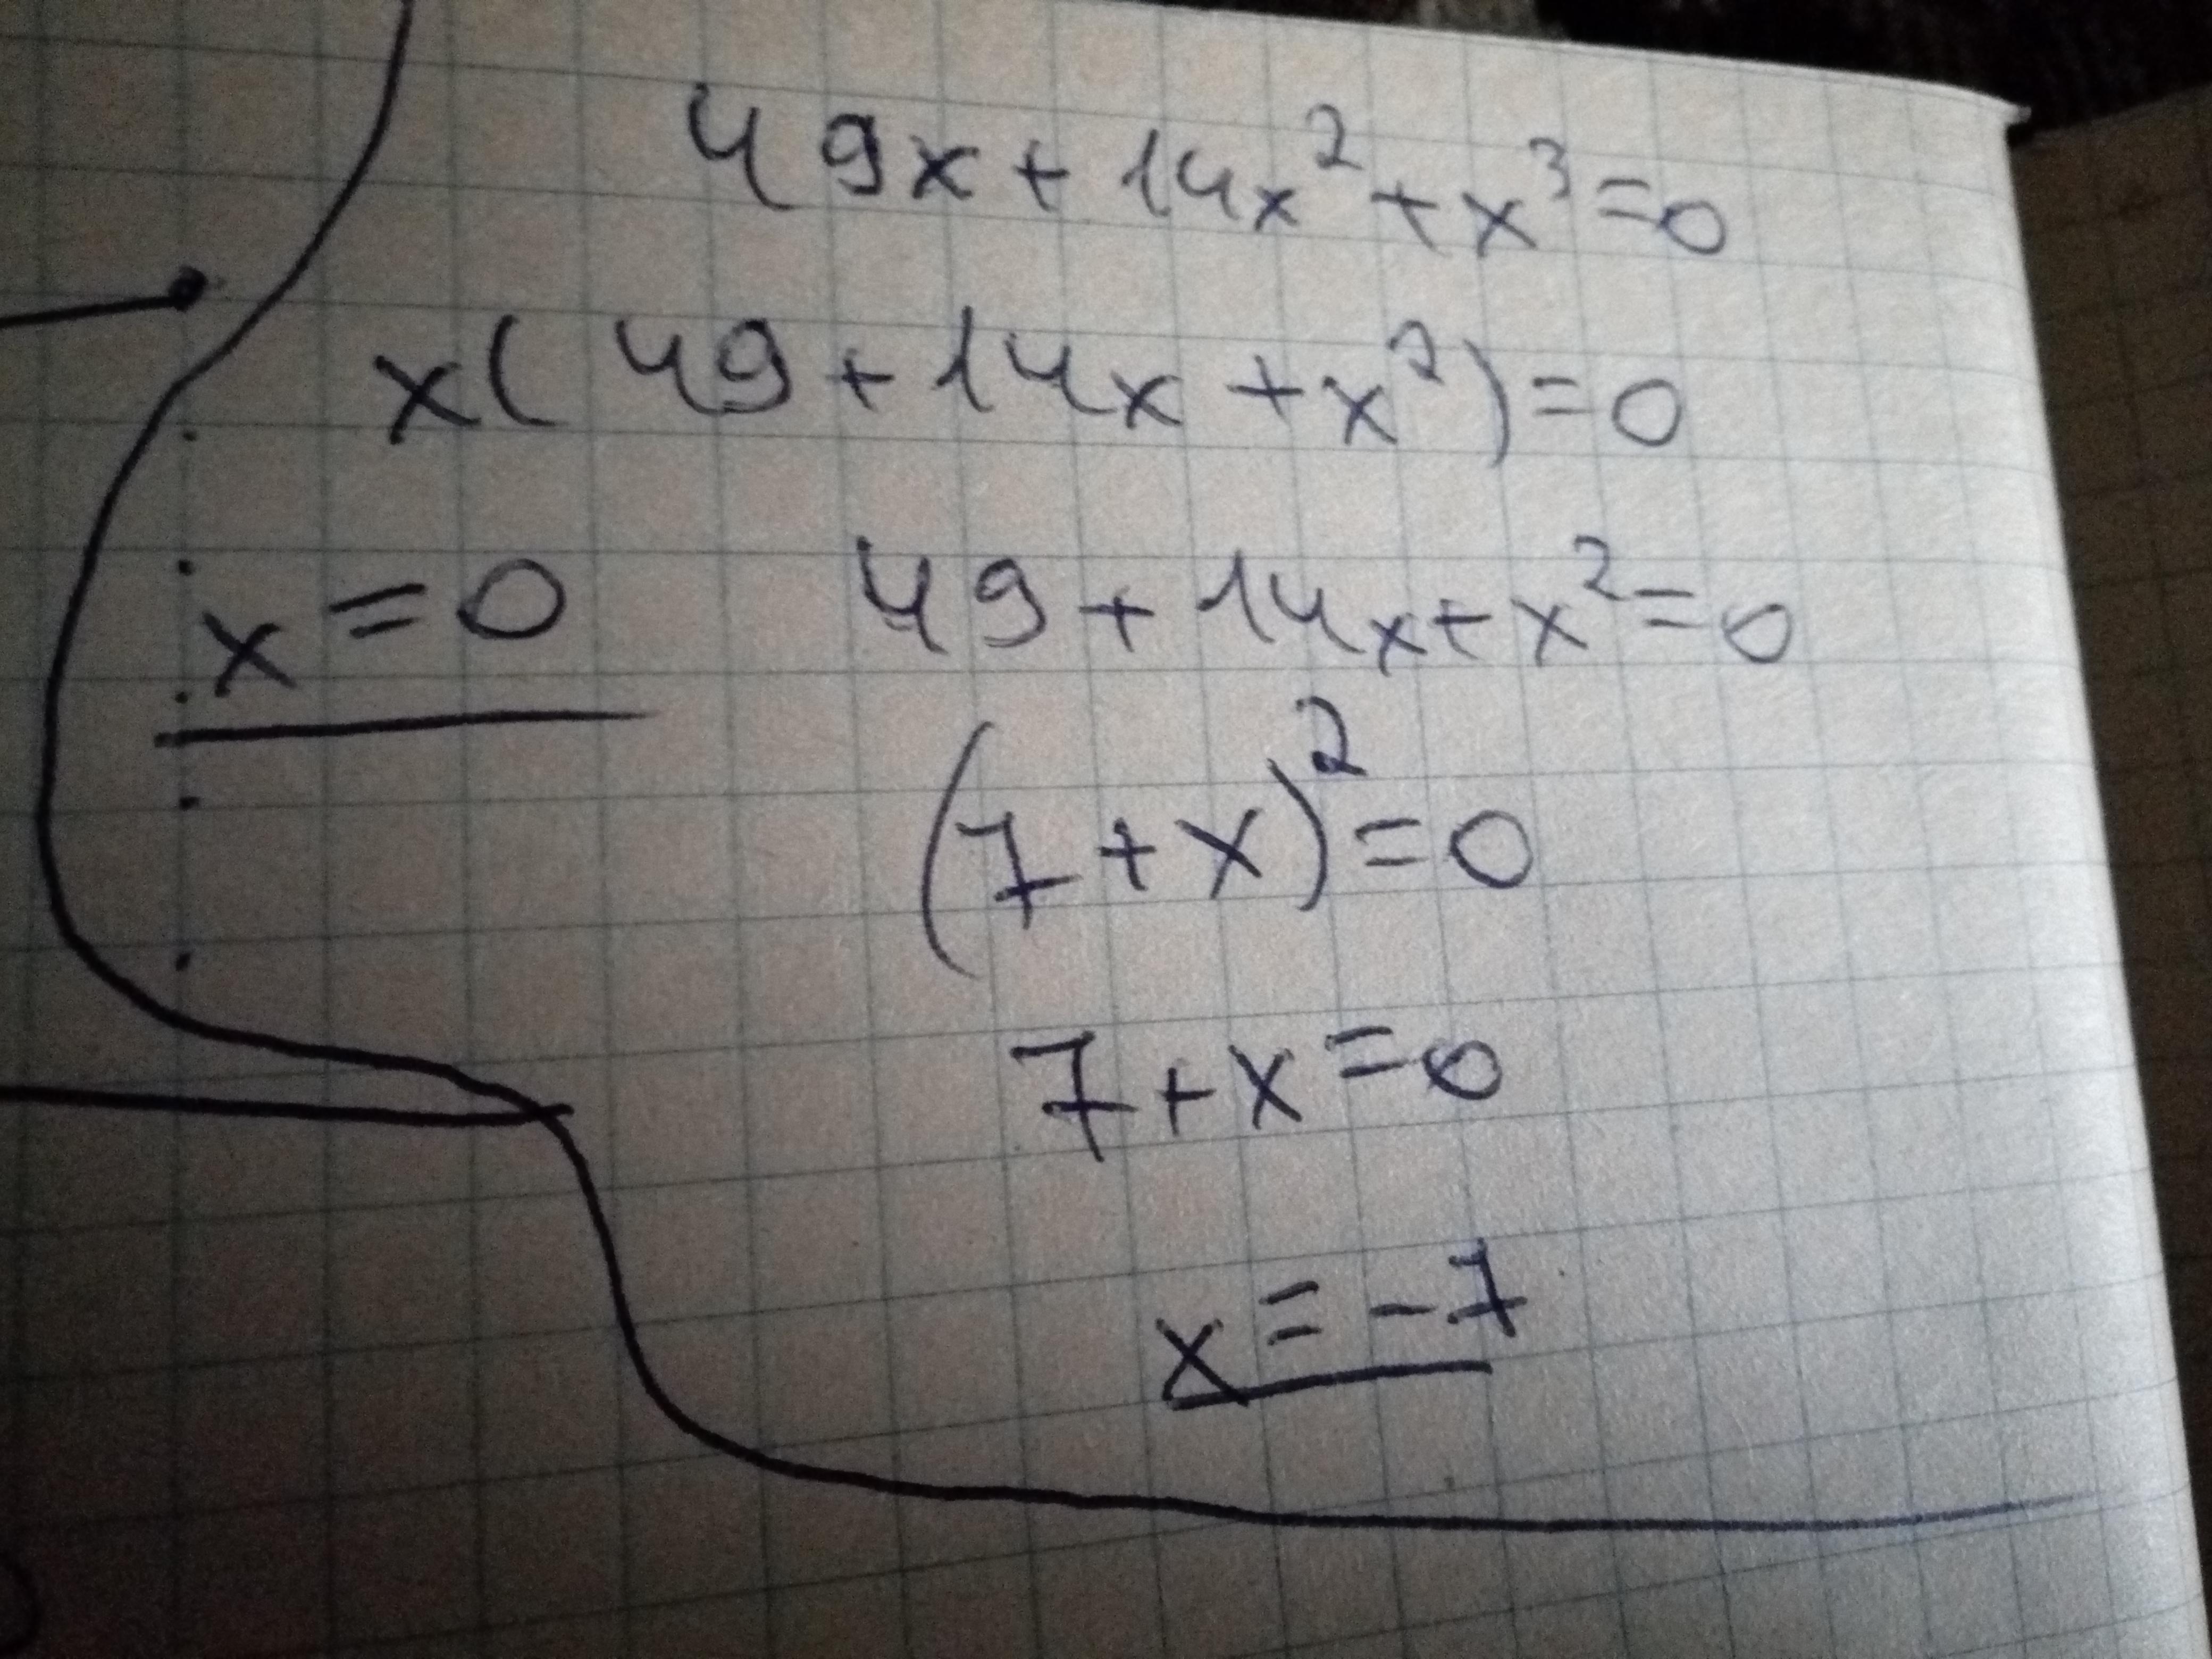 49x + 14x² + x³ = 0
x( 49 + 14x + x²) = 0
x = 0 49 + 14x + x² = 0
(7 + x)² = 0
7 + x = 0
x = -7